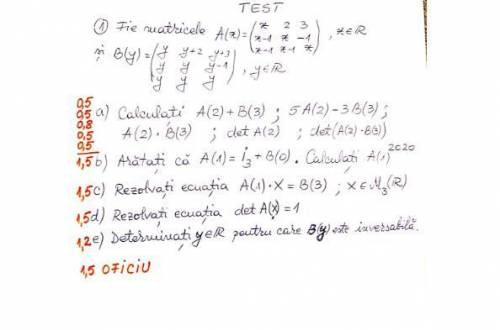 TEST
① Fie matricele A(x)=(x 2 3
x-1 x -1
x-1 -1 x), x∈ℝ
și B(y)=(y y+2 y+3
y y y-1
y y y), y∈ℝ
0,5
0,5 a) Calculați A(2)+B(3) ; 5A(2)-3B(3) ;
0,8 A(2)·B(3) ; det A(2) ; det(A(2)·B(3))
0,5
0,5
1,5 b) Arătați că A(1)=I₃+B(0). Calculați A(1)²⁰²⁰
1,5 c) Rezolvați ecuația A(1)·X=B(3) ; X∈M₃(ℝ)
1,5 d) Rezolvați ecuația det A(x)=1
1,2 e) Determinați y∈ℝ pentru care B(y) este inversabilă.
1,5 OFICIU